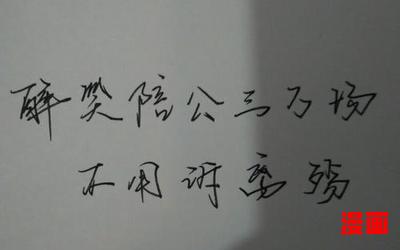 醉笑陪公三万场
不用诉离殇
漫画